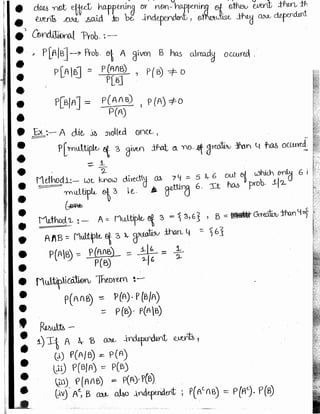 does not effect happening or non-happening of other event then th
events are said to be independent, otherwise they are dependent
Conditional Prob. :-
P[A|B] → Prob. of A given B has already occured.
P[A|B] = P(A∩B) / P[B] , P(B) ≠ 0
P[B|A] = P(A∩B) / P(A) , P(A) ≠ 0
Ex:- A die is rolled once,
P[multiple of 3 given that a no. of greater than 4 has occured
= 1/2
Method1:- we know directly as >4 = 5 & 6 out of which only 6 i
multiple of 3 i.e. getting 6. It has prob. 1/2
Method2 :- A = Multiple of 3 = {3,6} , B = Greater than 4 = {
A∩B = Multiple of 3 & greater than 4 = {6}
P(A|B) = P(A∩B) / P(B) = 1/6 / 2/6 = 1/2
Multiplication Theorem :-
P(A∩B) = P(A)·P(B/A)
= P(B)·P(A|B)
Results -
1) If A & B are independent events,
(i) P(A/B) = P(A)
(ii) P(B/A) = P(B)
(iii) P(A∩B) = P(A)·P(B)
(iv) Aᶜ, B are also independent ; P(Aᶜ∩B) = P(Aᶜ)·P(B)